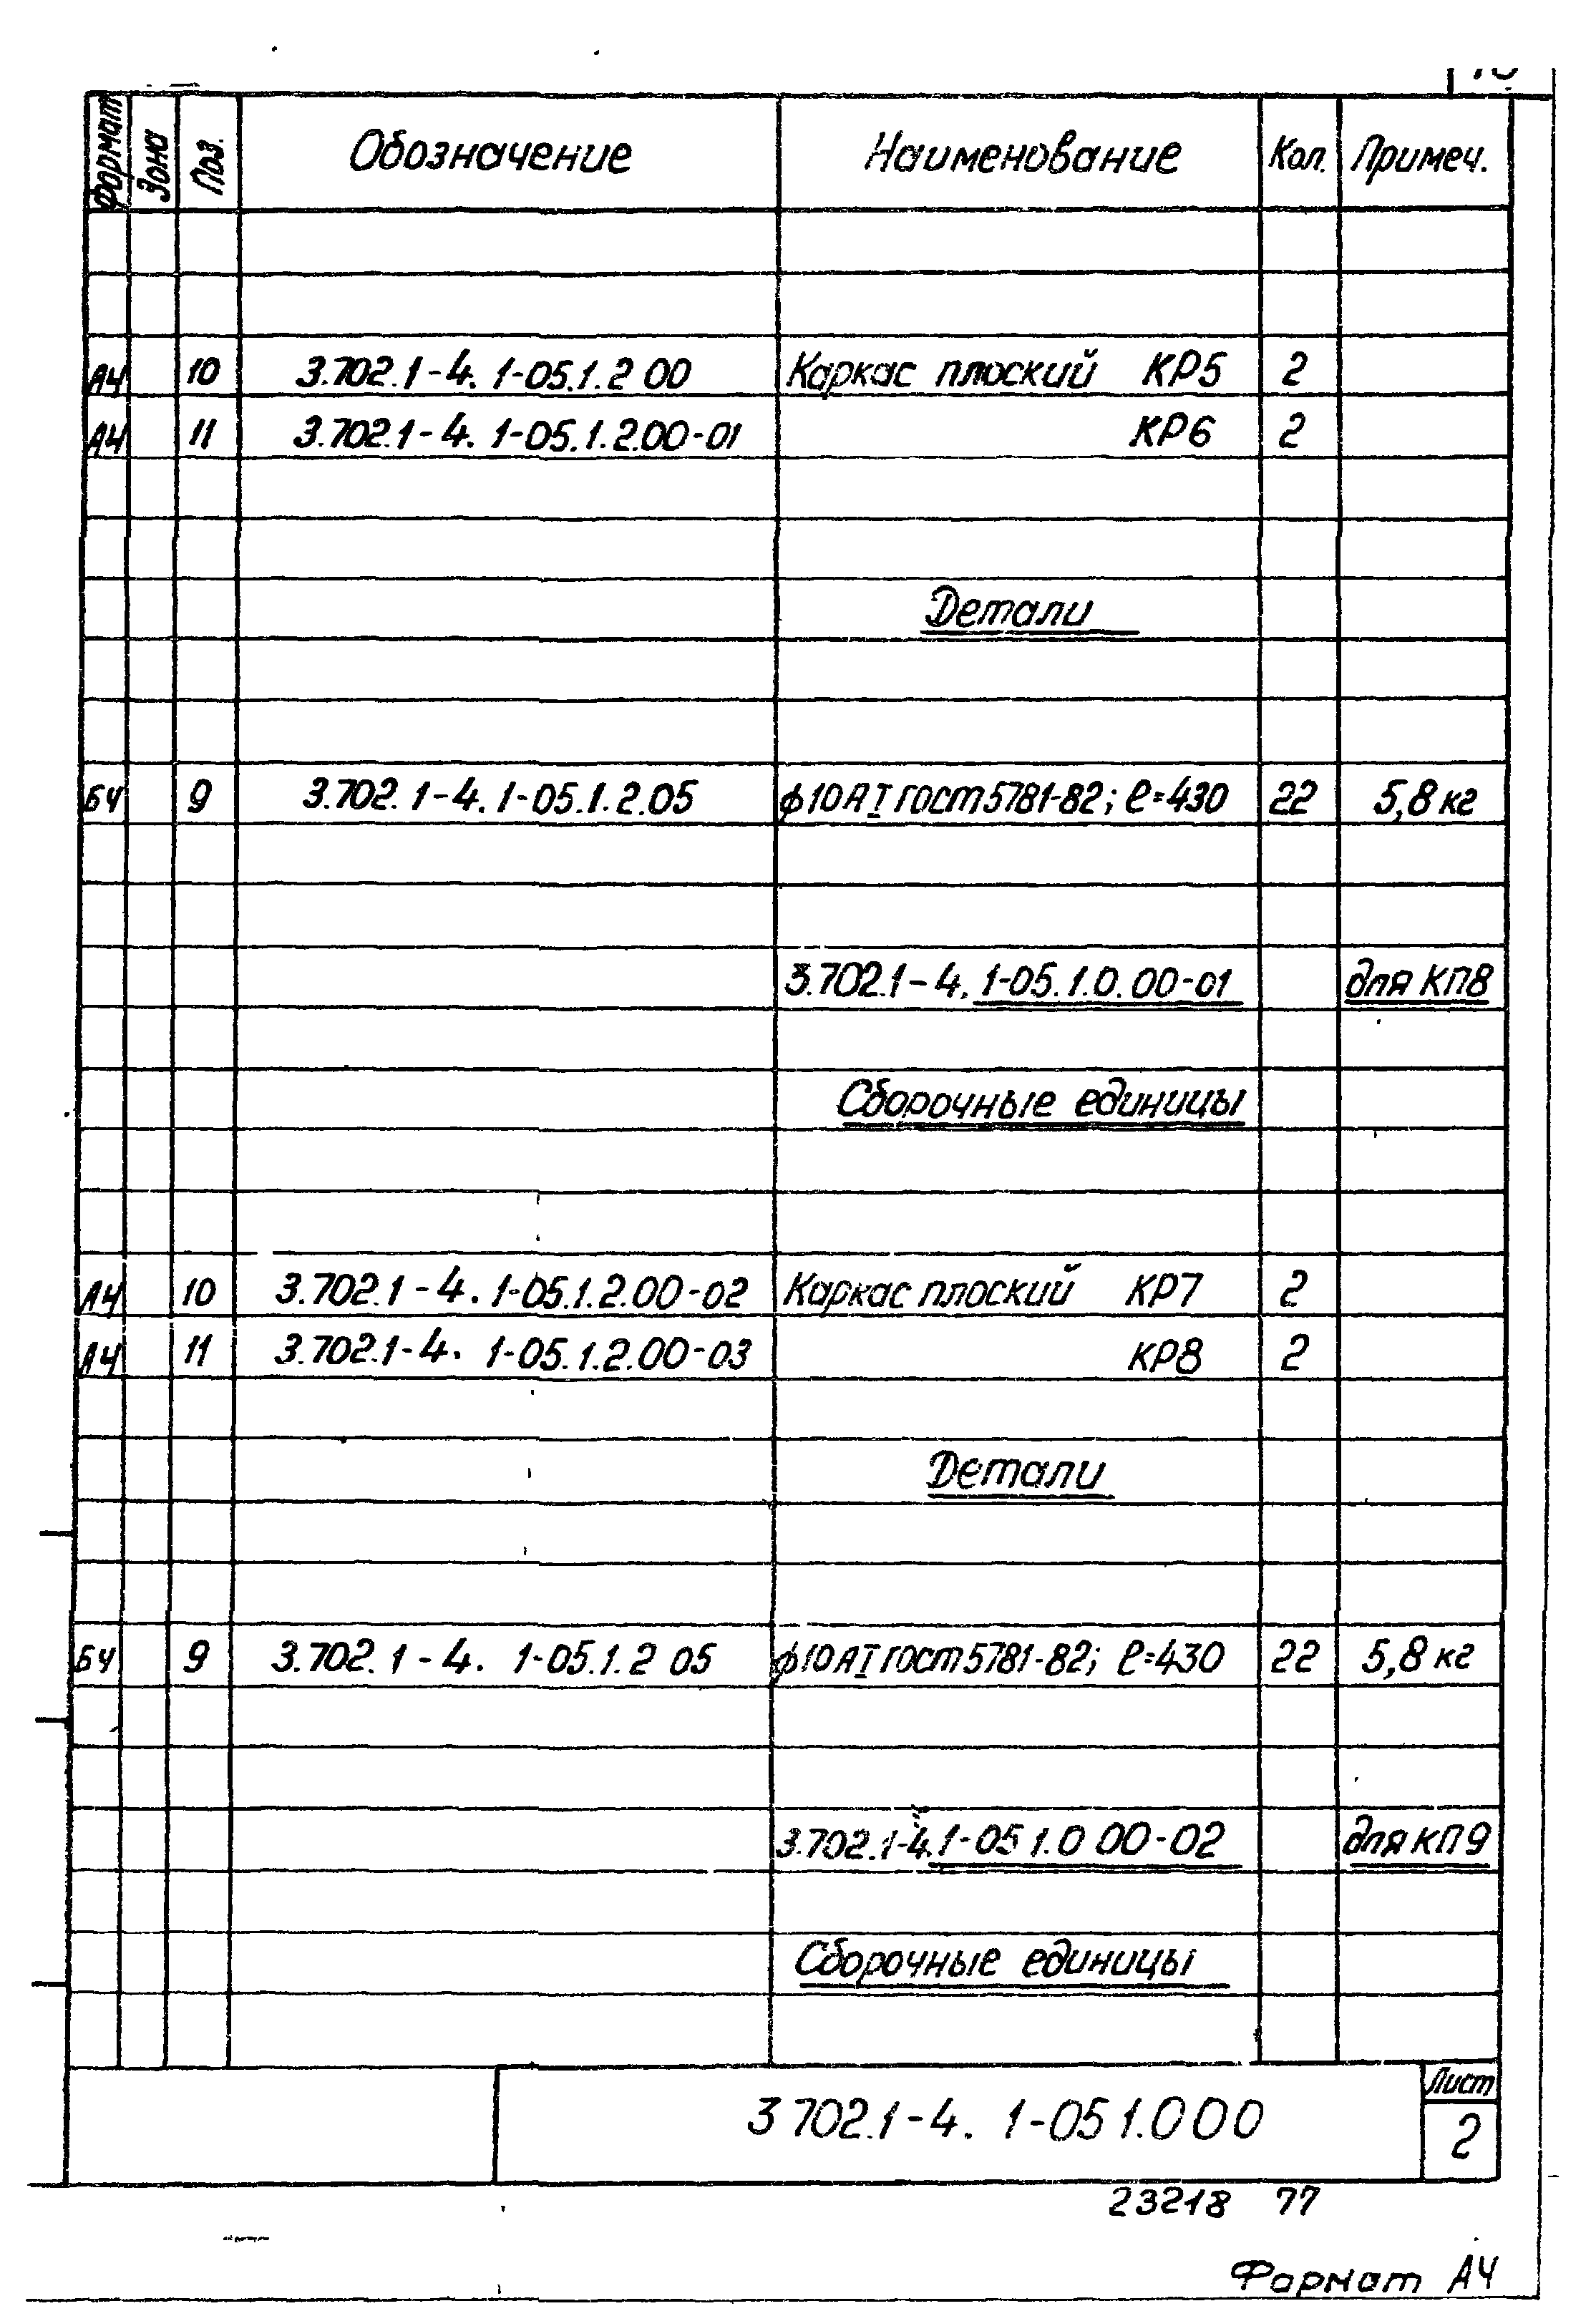 Формат Зона Поз. Обозначение Наименование Кол. Примеч.
А4 10 3.702.1-4. 1-05.1.2 00 Каркас плоский КР5 2
А4 11 3.702.1-4. 1-05.1.2.00-01 КР6 2
Детали
БЧ 9 3.702.1-4.1-05.1.2.05 ф10АI ГОСТ 5781-82; ℓ=430 22 5,8 кг
3.702.1-4. 1-05.1.0.00-01 для КП8
Сборочные единицы
А4 10 3.702.1-4. 1-05.1.2.00-02 Каркас плоский КР7 2
А4 11 3.702.1-4. 1-05.1.2.00-03 КР8 2
Детали
БЧ 9 3.702.1-4. 1-05.1.2 05 ф10АI ГОСТ 5781-82; ℓ=430 22 5,8 кг
3.702.1-4.1-05 1.0 00-02 для КП9
Сборочные единицы
3 702.1-4. 1-05 1.0 0 0
Лист
2
23218 77
Формат А4